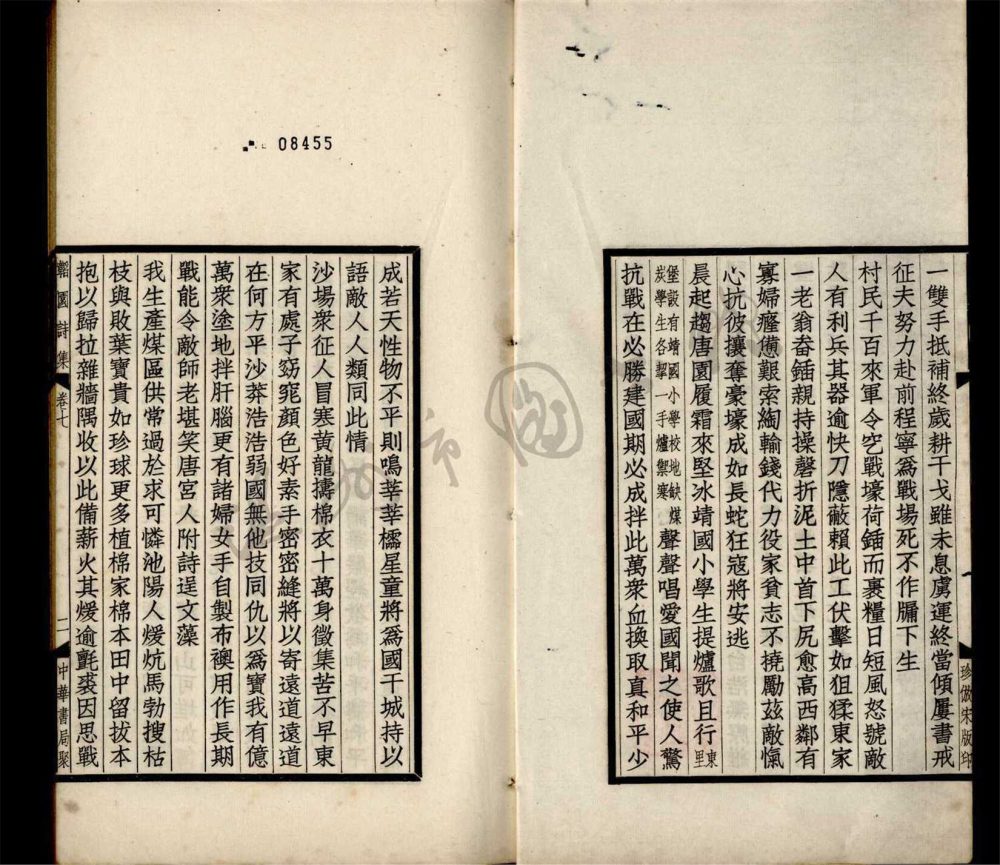 一雙手抵補終歲耕干戈雖未息虜運終當傾屢書戒
征夫努力赴前程寧為戰場死不作牖下生
村民千百來軍令空戰壕荷鍤而裹糧日短風怒號敵
人有利兵其器逾快刀隱蔽賴此工伏擊如狙猱東家
一老翁畚鍤親持操磬折泥土中首下尻愈高西鄰有
寡婦癃憊艱索綯輸錢代力役家貧志不撓勵茲敵愾
心抗彼攘奪豪壕成如長蛇狂寇將安逃
晨起趨唐園履霜來堅冰靖國小學生提爐歌且行東里
堡設有靖國小學校地缺煤炭學生各挈一手爐禦寒聲聲唱愛國聞之使人驚
抗戰在必勝建國期必成拚此萬衆血換取真和平少
珍倣宋版印
成若天性物不平則鳴莘莘櫺星童將為國干城持以
語敵人人類同此情
沙場衆征人冒寒黃龍擣棉衣十萬身徵集苦不早東
家有處子窈窕顏色好素手密密縫將以寄遠道遠道
在何方平沙莽浩浩弱國無他技同仇以為寶我有億
萬衆塗地拌肝腦更有諸婦女手自製布襖用作長期
戰能令敵師老堪笑唐宮人附詩逞文藻
我生產煤區供常過於求可憐池陽人煖炕馬勃搜枯
枝與敗葉寶貴如珍球更多植棉家棉本田中留拔本
抱以歸拉雜牆隅收以此備薪火其煖逾氈裘因思戰
詩集
卷七
二
中華書局聚
08455